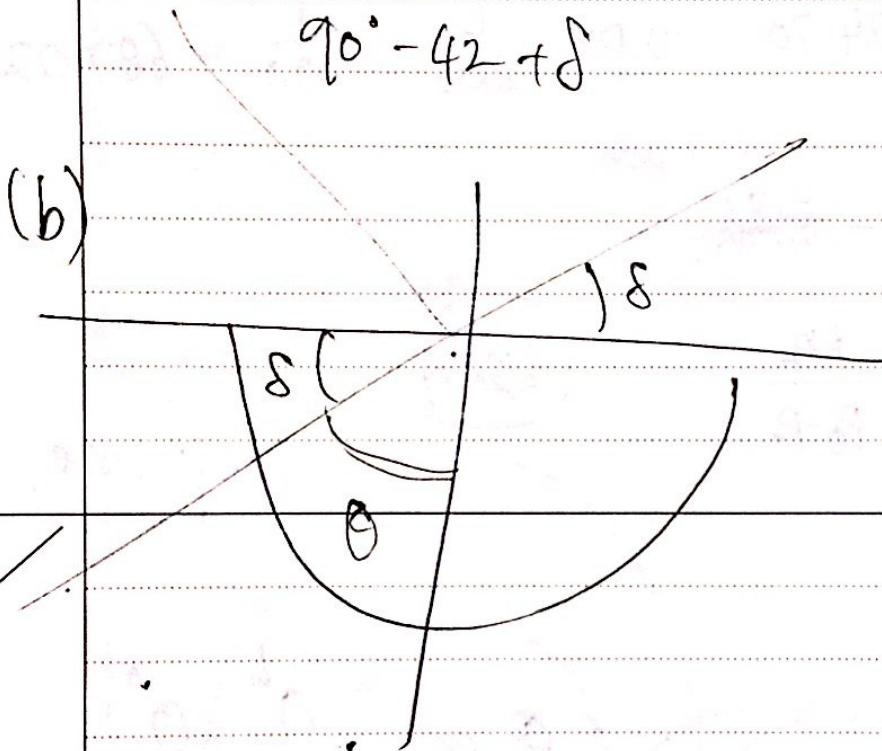 90° - 42 + δ
(b)
δ
δ
θ